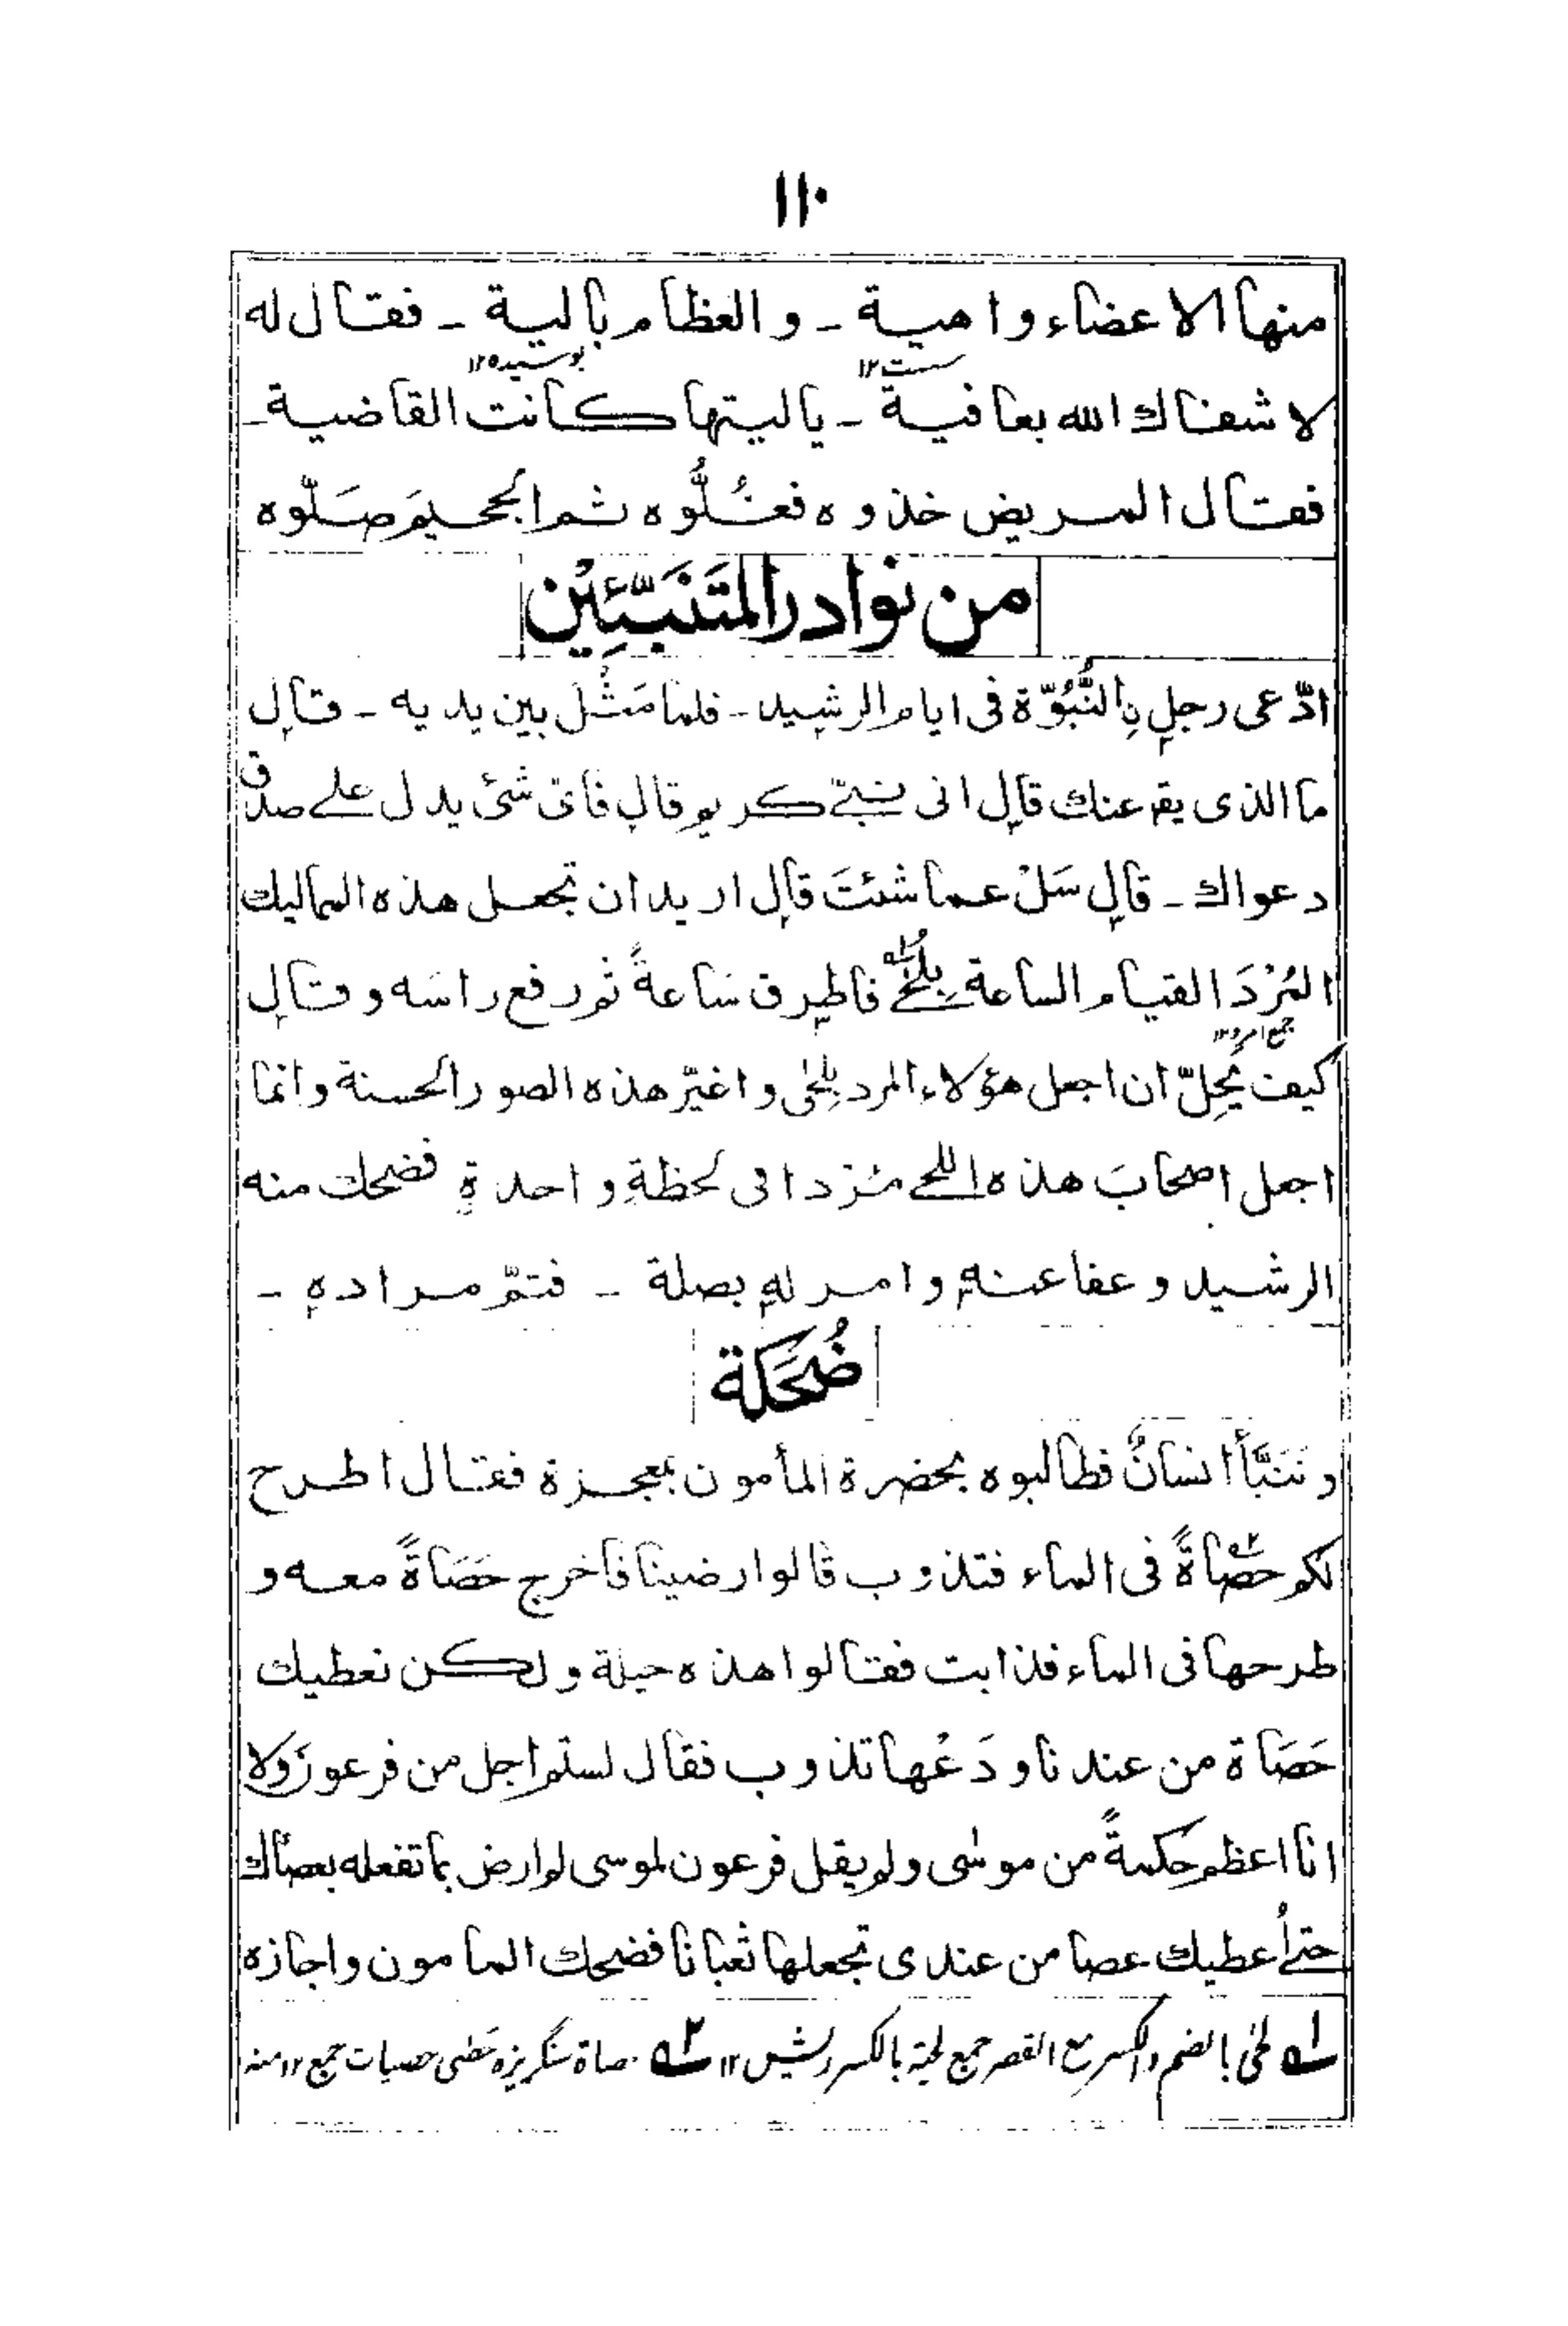 ١١٠
منها الاعضاء واهية ـ والعظام بالية ـ فقال له
سست١٢ بوسیدہ١٢
لا شفاك الله بعافية ـ ياليتها كانت القاضية ـ
فقال المريض خذوه فغُلُّوه ثم الجحيمَ صَلّوه
من نوادر المتَنَبِّئِيْن
ادّعى رجل بِالنُّبُوّة فى ايام الرشيد ـ فلما مَثُلَ بين يديه ـ قال
ما الذى يقم عنك قال انى نبىّ كريم قال فاىّ شئ يدل على صدق
دعواك ـ قال سَلْ عما شئتَ قال اريد ان تجعل هذه المماليك
المُرْدَ القيام الساعة بِلُحًى فاطرق سَاعةً ثم رفع راسَه وقال
جمع امرد١٢
كيف يَحِلّ ان اجعل هؤلاء المرد بِلُحٰى واغيّر هذه الصور الحسنة وانما
اجعل اصحابَ هذه اللحى مُرْدا فى لحظةٍ واحدةٍ فضحك منه
الرشيد وعفا عنه وامر له بصلة ـ فتمّ مراده ـ
ضُحَكَة
وتَنَبَّأَ انسانٌ فطالبوه بحضرة المأمون بمعجزة فقال اطرح
لكم حَصَاةً فى الماء فتذوب قالوا رضينا فاخرج حَصَاةً معه و
طرحها فى الماء فذابت فقالوا هذه حيلة ولكن نعطيك
حَصَاة من عندنا ودَعْها تذوب فقال لستم اجل من فرعون ولا
انا اعظم حكمةً من موسٰى ولم يقل فرعون لموسى لم ارض بما تفعله بعصاك
حتى أُعطيك عصا من عندى تجعلها ثعبانا فضحك المامون واجازه
١ لحٰى بالضم والكسر مع القصر جمع لحية بالكسر ريش ١٢ ٢ حصاة سنگریزہ حَصٰى حصيات جمع ١٢ منه